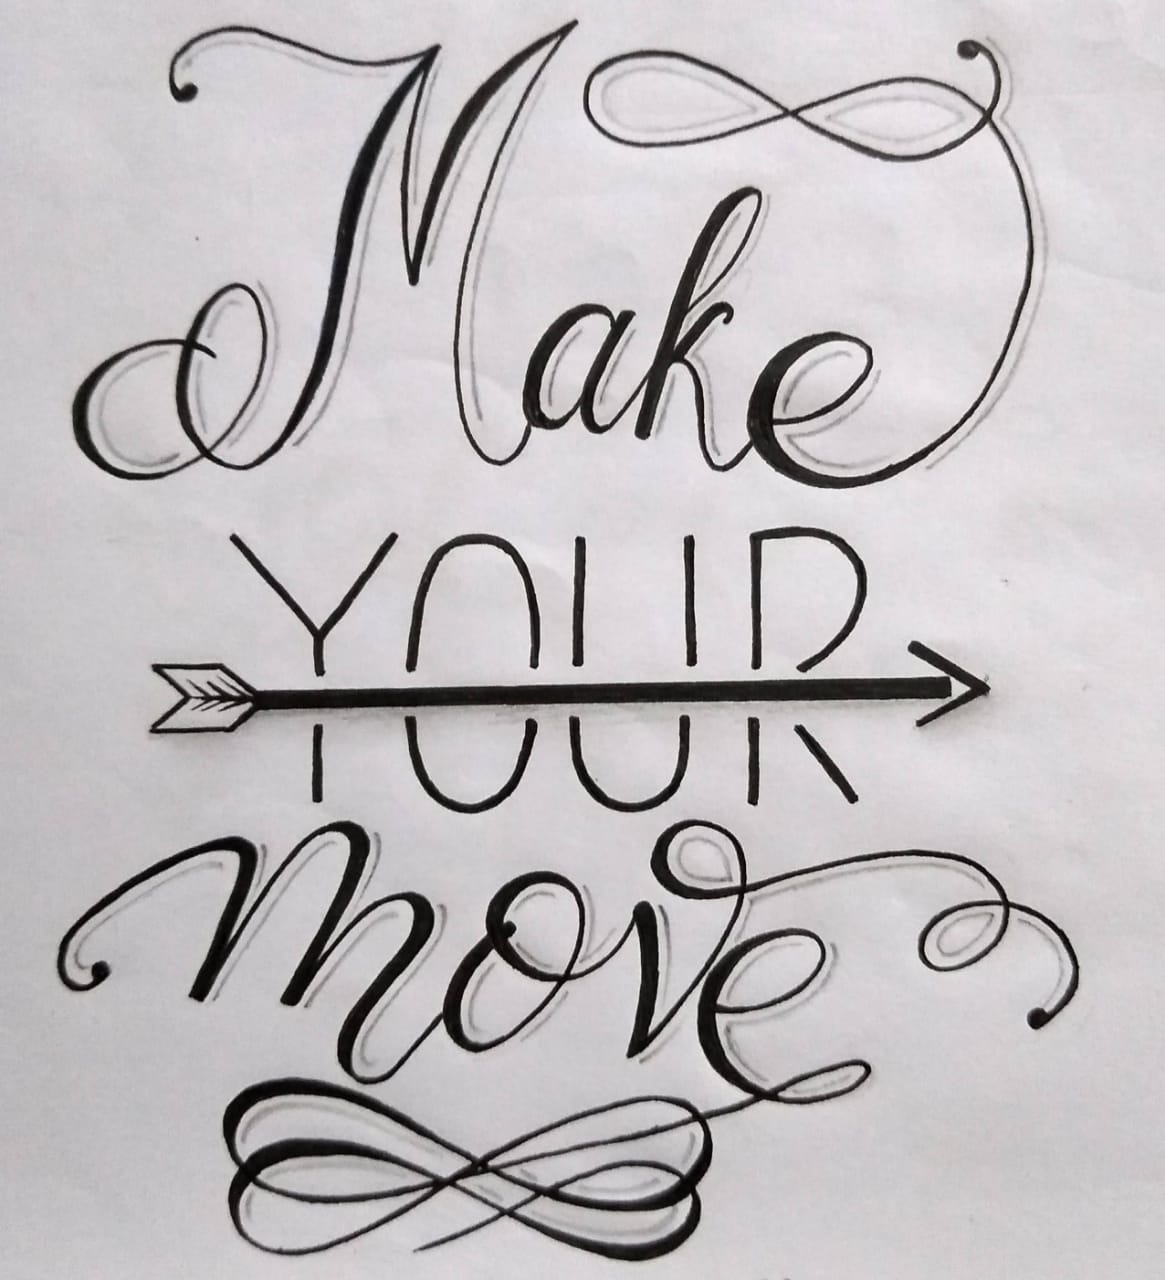 Make
YOUR
move